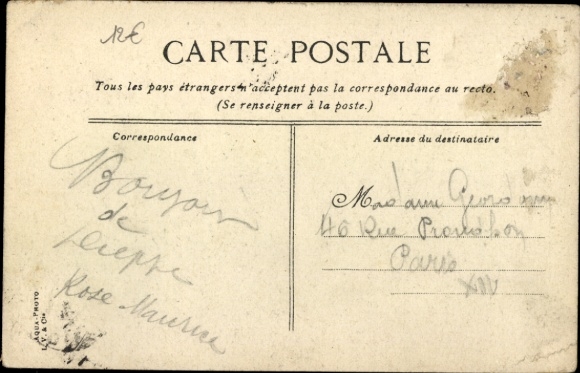 12€
CARTE POSTALE
Tous les pays étrangers n'acceptent pas la correspondance au recto.
(Se renseigner à la poste.)
Correspondance
Bonjour
de
Dieppe
Rose Maurice
AQUA-PHOTO
L. V. & Cie
Adresse du destinataire
Madame
46 Rue Proudhon
Paris
XII